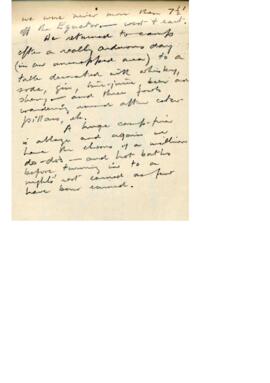 we were never more than 7½°
off the Equator — west & east.
We returned to camp
after a really arduous day
(in an unmapped area) to a
table decorated with whiskey,
soda, gin, lime-juice, beer and
sherry — and three fowls
wandering around after cater-
pillars, etc.
A huge camp-fire
is ablaze and again we
have the chorus of a million
— and hot baths
before turning in to a
night's rest earned as few
have been earned.